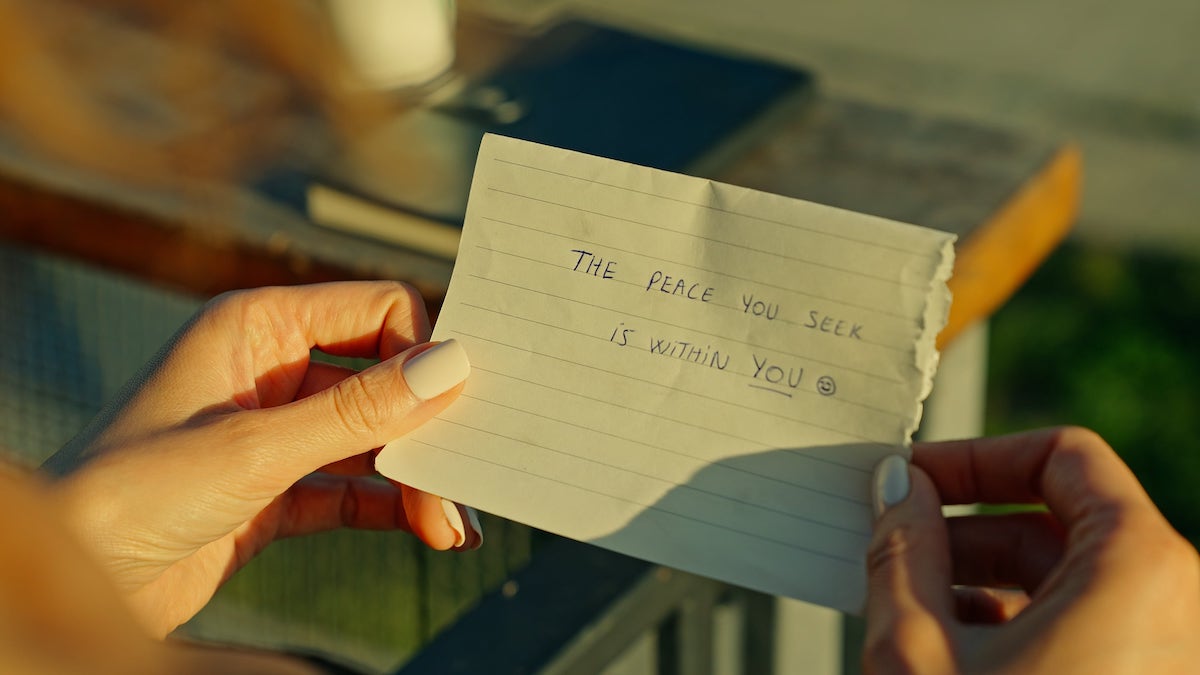 THE PEACE YOU SEEK
iS WiTHiN YOU ☺